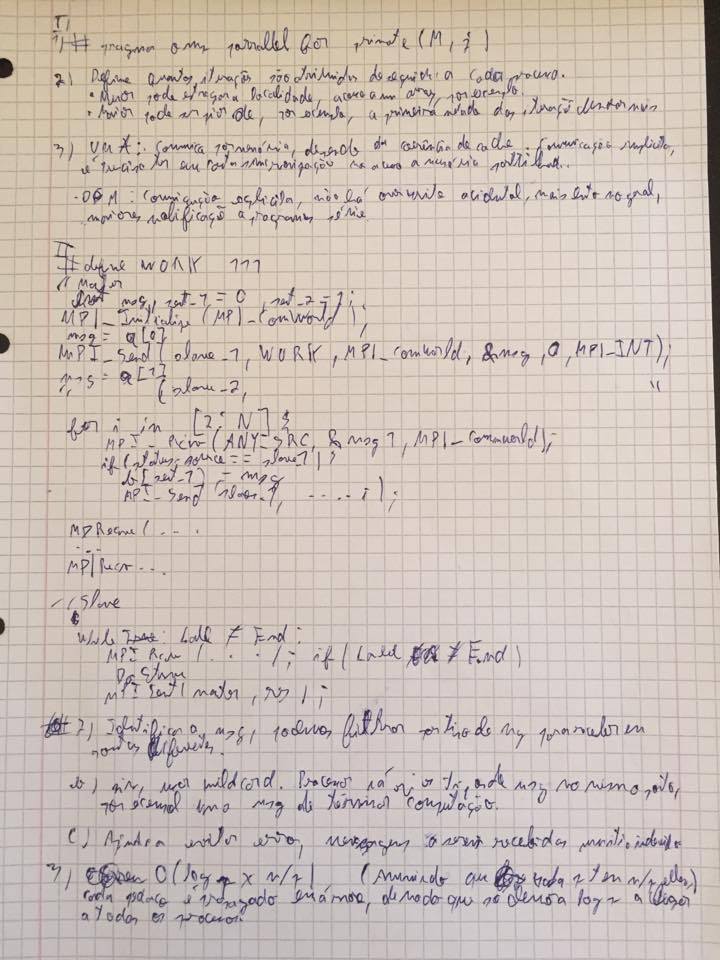 I
1) # pragma omp parallel for private (M, j)
2) Define quantas iterações são atribuídas de seguida a cada processo.
• Menor pode estragar a localidade, acesso a um array, por exemplo.
• Maior pode ser pior de, por exemplo, a primeira metade das iteração
3) UMA: Comunica por memória, depende da coerência de cache. Comunicação implícita,
é preciso ter em conta sincronização no acesso a memória partilhada.
- DSM: Comunicação explícita, não há overwrite acidental, mais lento no geral,
maiores modificação a programas série.
II
# define WORK 111
// Master
int msg, sent_1 = 0, sent_2 = 1;
MPI_Initialize (MPI_ComWorld);
msg = a[0]
MPI_Send (slave_1, WORK, MPI_comworld, &msg, 0, MPI_INT);
msg = a[1]
" (slave_2, "
for i in [2: N] {
MPI_Recv (ANY_SRC, &msg1, MPI_Commworld);
if (status.source == slave1) {
b[sent_1] = msg
MPI_Send slave_1, ..... i);
MPI Receive (...
...
MPI Recv ...
// Slave
While Label ≠ End:
MPI Recv (...); if (Label ≠ End)
Do Stuff
MPI Send (master, res);
2) Identificar a msg, podemos filtrar por tipo de msg para receber em
pontos diferentes.
b) sim, usar wildcard. Processo não onde msg no mesmo sítio,
por exemplo uma msg de término computação.
c) Ajuda a evitar erros, mensagens a serem recebidas
3) O(log p x n/p) (assumindo que cada p tem n/p)
cada passo é em árvore, de modo que só demora log p a chegar
a todos os processos.